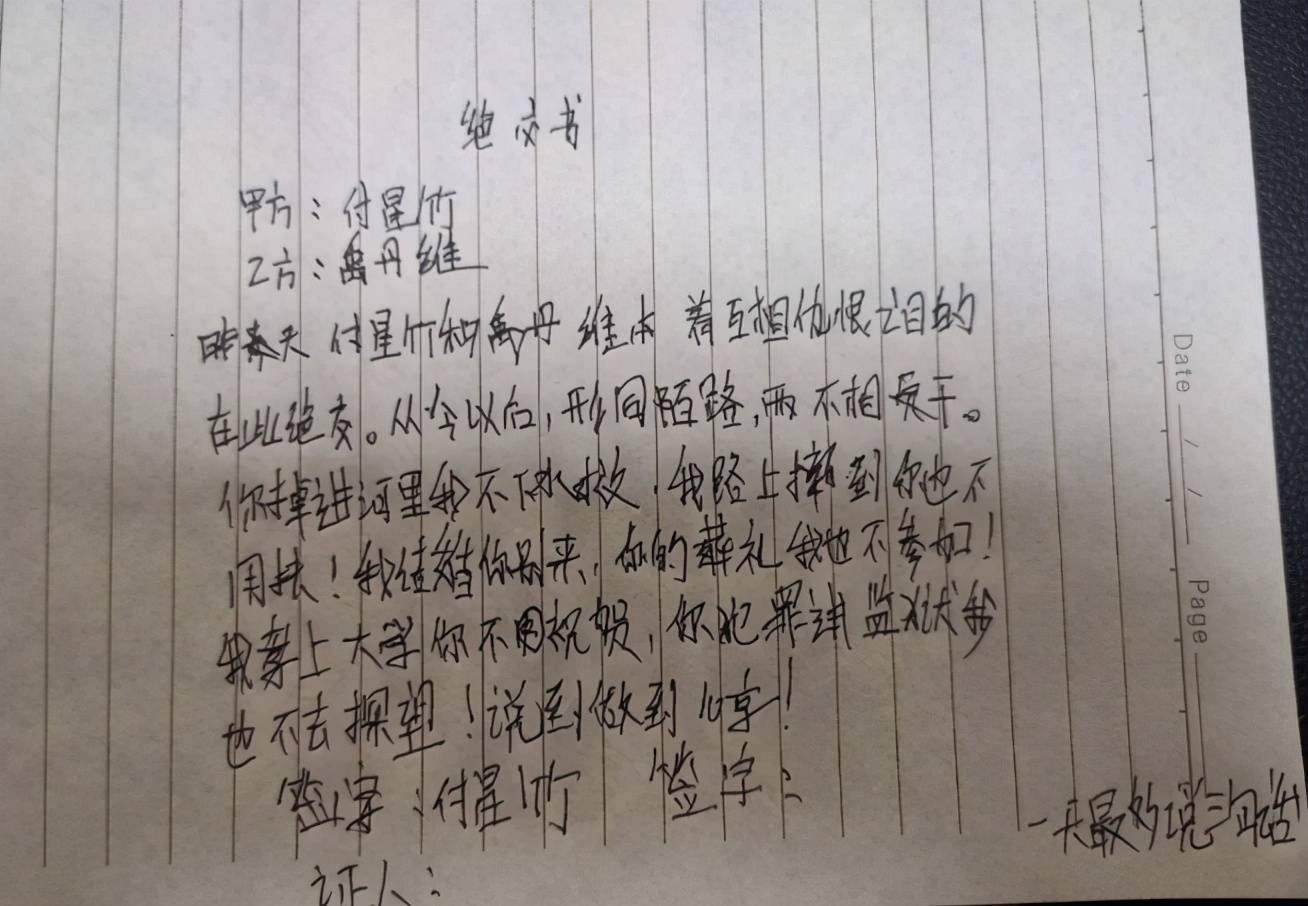 绝交书
甲方：付星竹
乙方：禹丹维
昨天 付星竹和禹丹 维本 着互相仇恨之目的
在此绝交。从今以后，形同陌路，两不相干。
你掉进河里我不下水救，我路上摔到你也不
用扶！我结婚你别来，你的葬礼我也不参加！
我考上大学你不用祝贺，你犯罪进监狱我
也不去探望！说到做到
签字：付星竹 签字：
证人：
一天最多说三句话
Date / /
Page